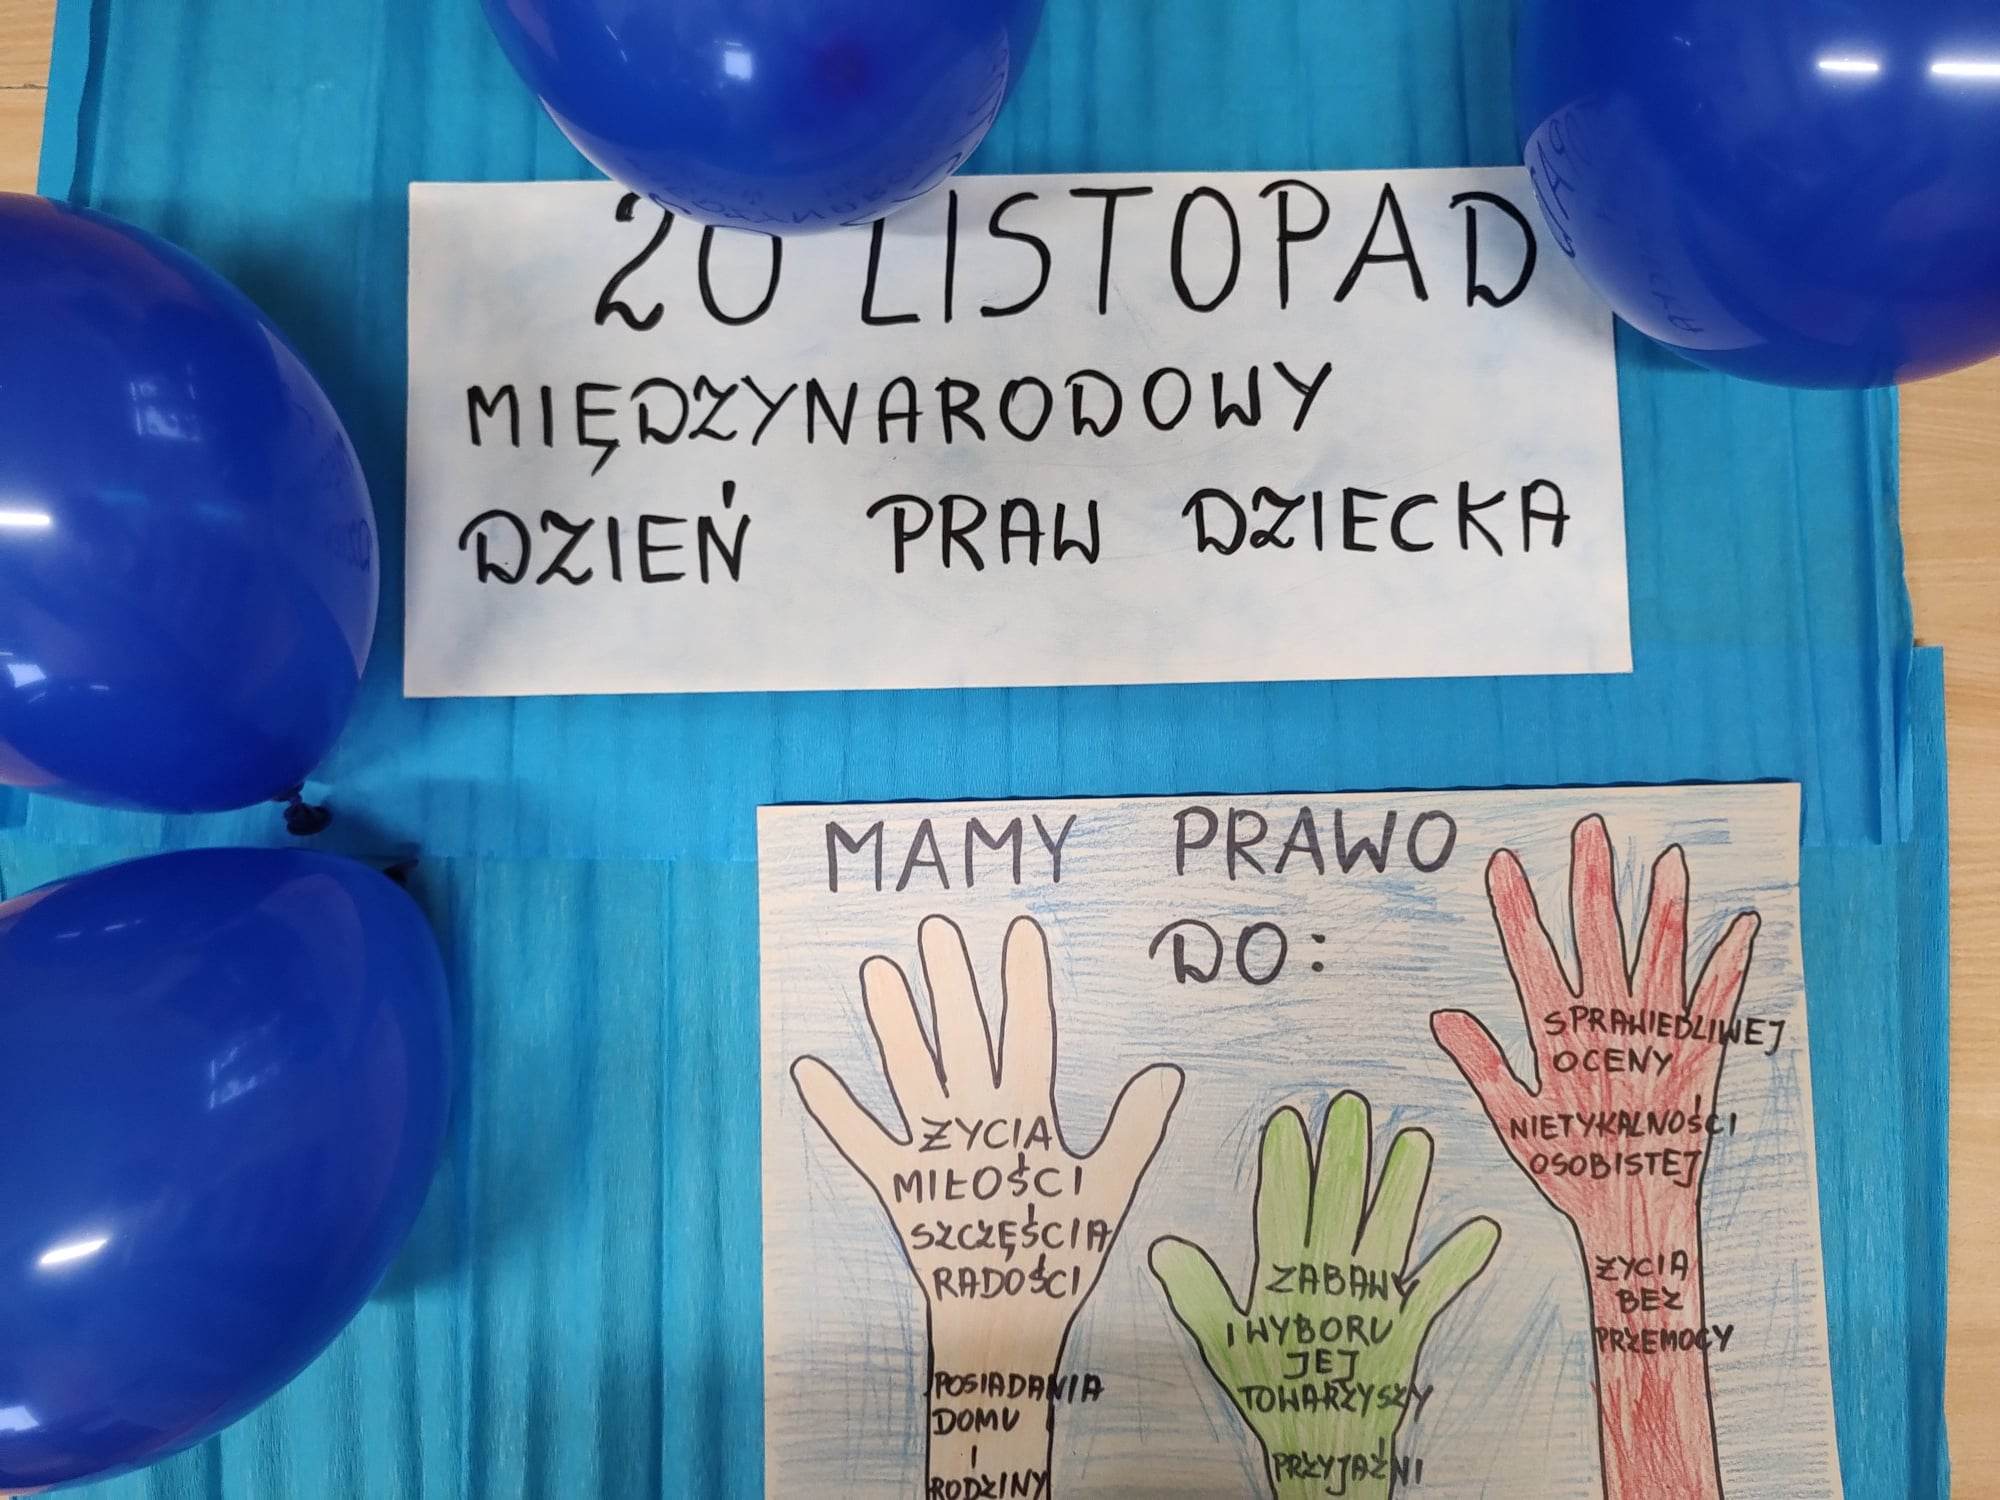 20 LISTOPAD
MIĘDZYNARODOWY
DZIEŃ PRAW DZIECKA
MAMY PRAWO
DO:
ŻYCIA
MIŁOŚCI
SZCZĘŚCIA
RADOŚCI
POSIADANIA
DOMU
I
RODZINY
ZABAWY
I WYBORU
JEJ
TOWARZYSZY
PRZYJAŹNI
SPRAWIEDLIWEJ
OCENY
NIETYKALNOŚCI
OSOBISTEJ
ŻYCIA
BEZ
PRZEMOCY